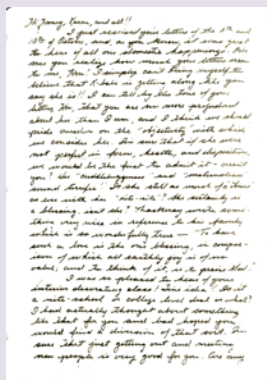 Hi Tommy, Karen, and all!!
I just received your letters of the 8th and
10th of October, and, as you know, it was great
to hear of all our domestic happenings. I'm
sure you realize how much your letters mean
to me, Mom. I simply can't bring myself to
believe that is getting along like you
say she is!! I can tell by the tone of your
letter, Mom, that you are no more prejudiced
about her than I am, and I think we should
pride ourselves on the "objectivity" with which
we consider her. I'm sure that if she were
not perfect in form, health, and disposition
we would be the first to admit it - aren't
you? Her "cuddlesomeness" and "
sound terrific. Is she still as much of a
as ever with her She certainly is
a blessing, isn't she? Thackeray wrote some-
thing very nice in reference to his family
which is so wonderfully true - "To have
such a love is the one blessing, in compar-
ison of which all earthly joy is of no
value; and to think of it, is to praise God."
I was so pleased to hear of your
interior decorating class idea! Is it
a nite-school or college level deal or what?
I had actually thought about something
like that for you and had hoped you
would find a diversion of that sort. I'm
sure that just getting out and meeting
new people is very good for you. Are any